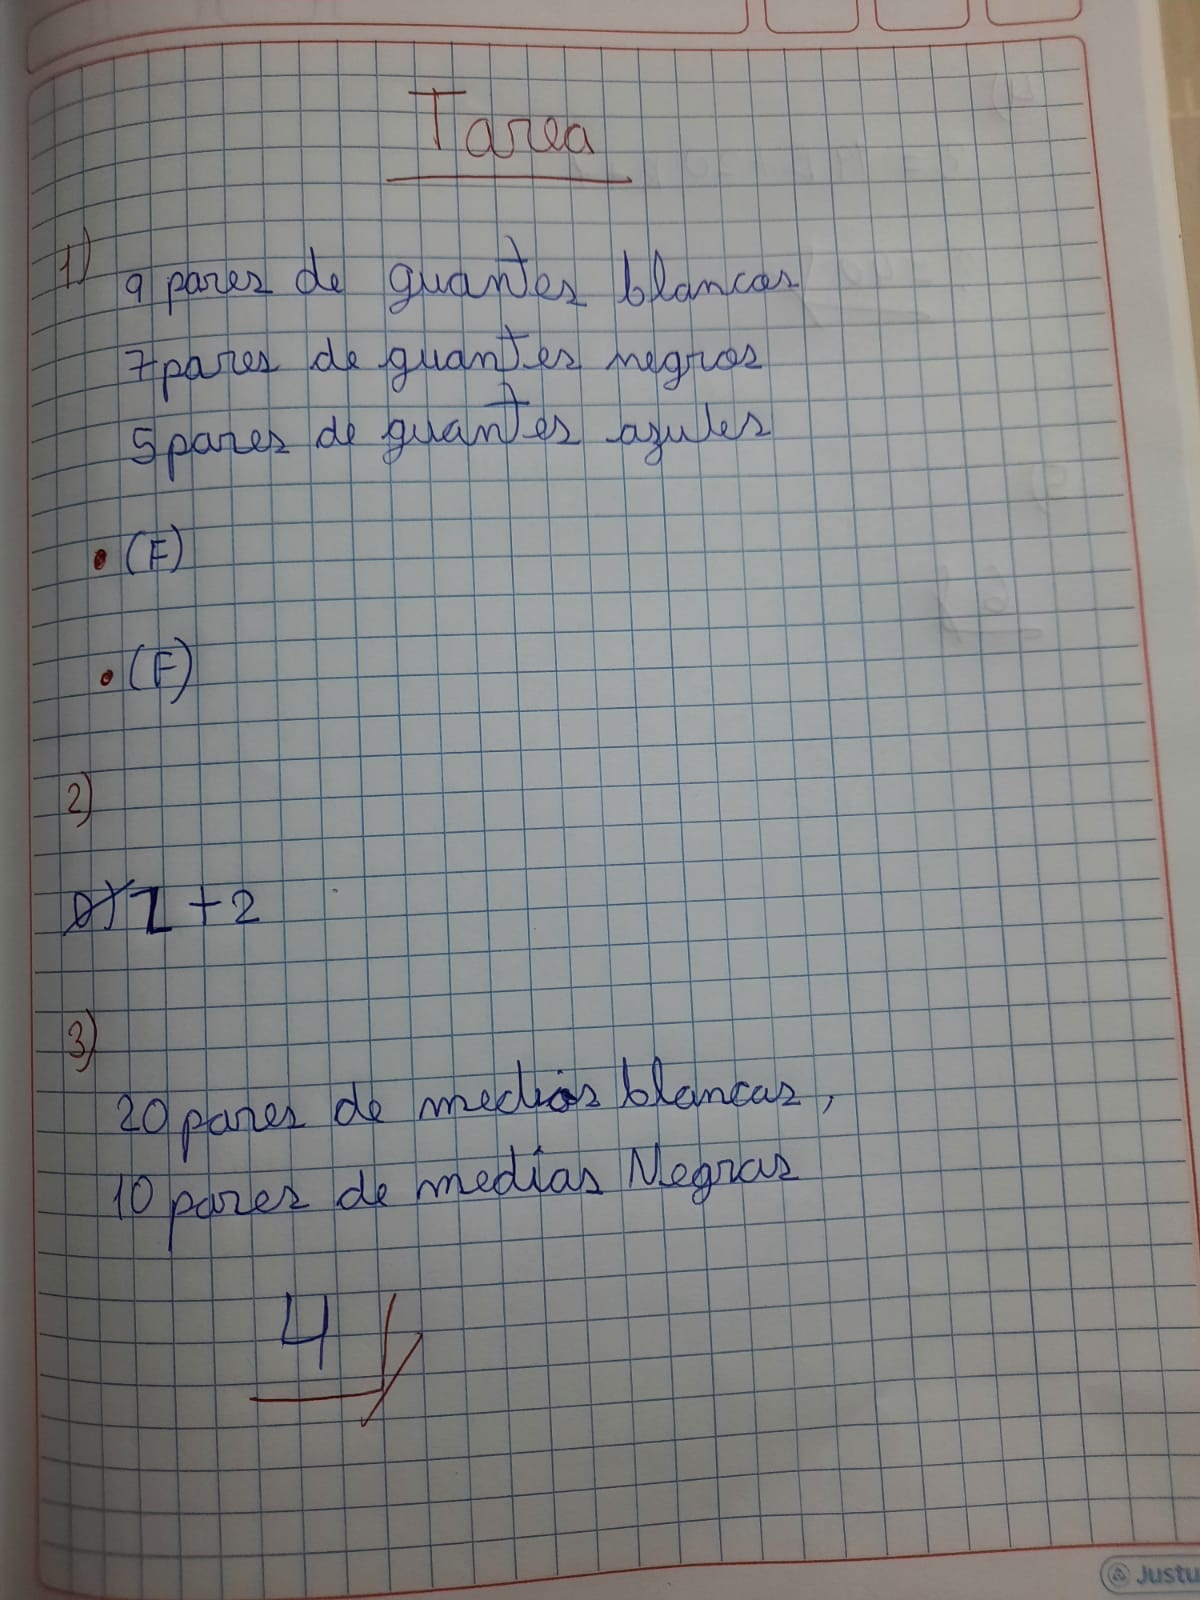 Tarea
1)
9 pares de guantes blancos
7 pares de guantes negros
5 pares de guantes azules
• (F)
• (F)
2)
1 + 2
3)
20 pares de medias blancas,
10 pares de medias Negras
4
Justu